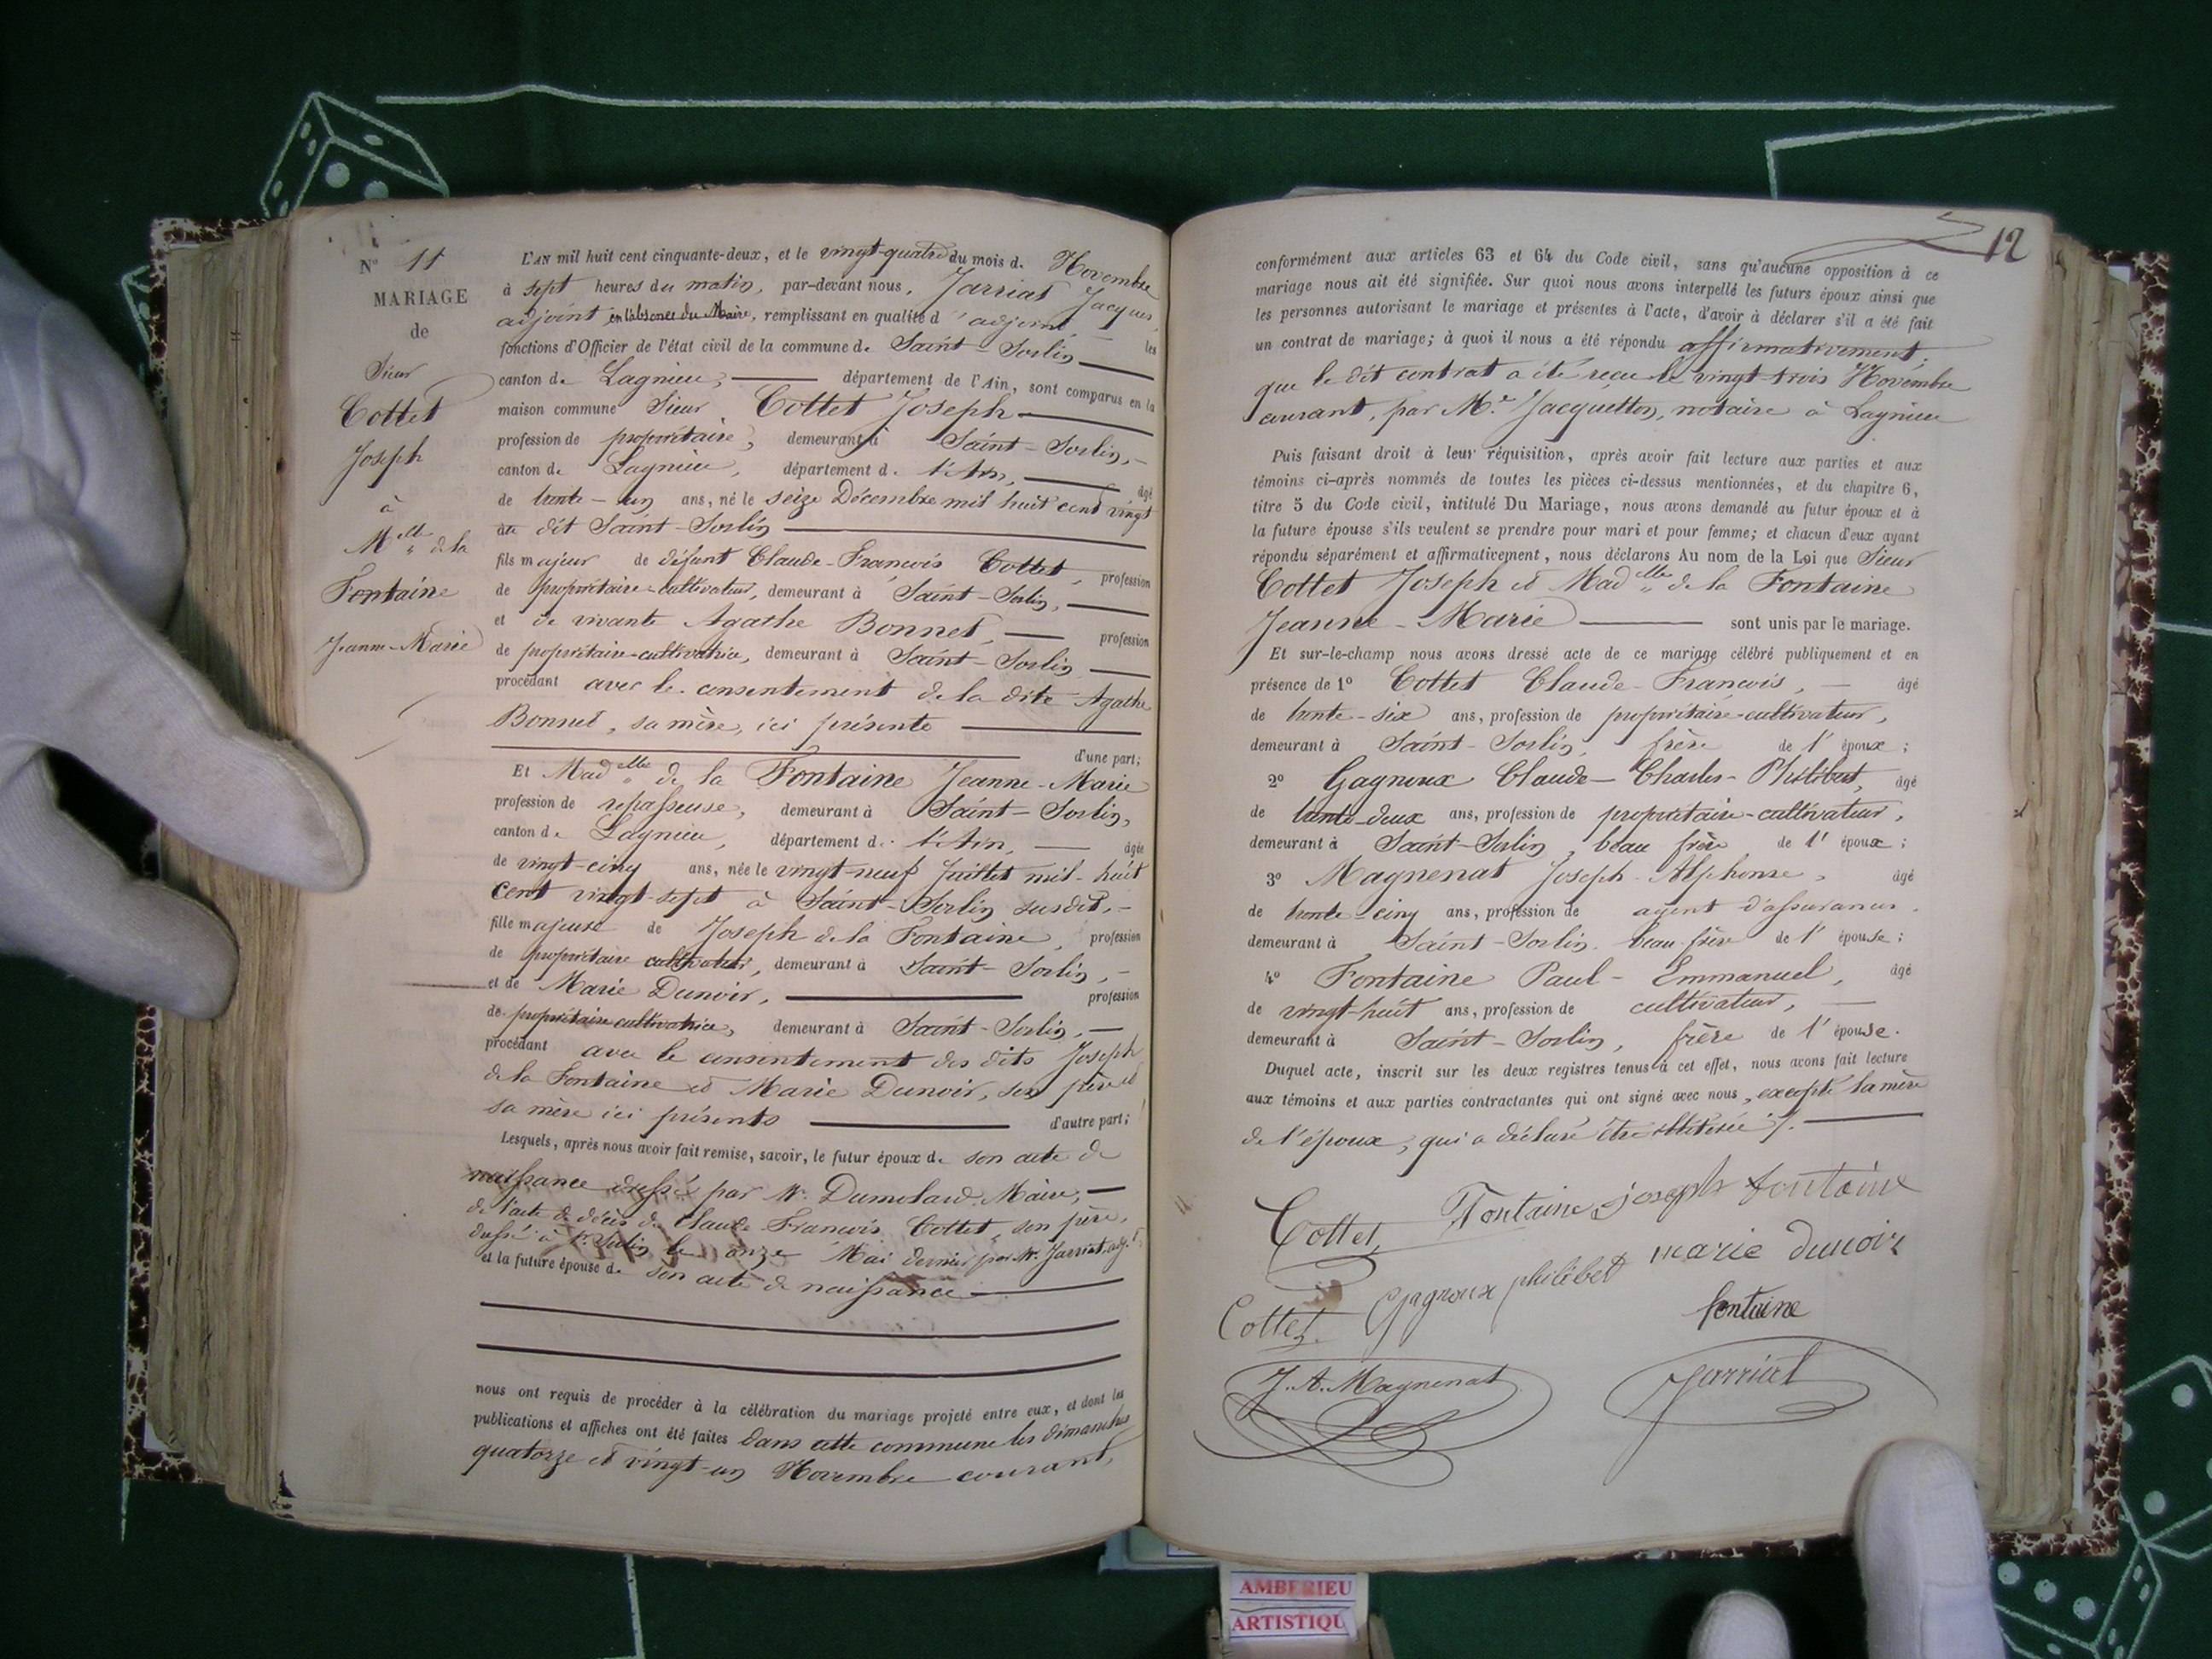 N° 11
MARIAGE
de
Sieur
Cottet
Joseph
à
Melle de la
Fontaine
Jeanne-Marie
L'AN mil huit cent cinquante-deux, et le vingt-quatre du mois d. Novembre
à sept heures du matin, par-devant nous, Jarriat Jacques,
adjoint en l'absence du Maire, remplissant en qualité d'adjoint les
fonctions d'Officier de l'état civil de la commune de Saint-Sorlin
canton de Lagnieu, département de l'Ain, sont comparus en la
maison commune Sieur Cottet Joseph
profession de propriétaire, demeurant à Saint-Sorlin,
canton de Lagnieu, département d. l'Ain, âgé
de trente-un ans, né le seize Décembre mil huit cent vingt
au dit Saint-Sorlin
fils majeur de défunt Claude-François Cottet, profession
de propriétaire-cultivateur, demeurant à Saint-Sorlin,
et de vivante Agathe Bonnet, profession
de propriétaire-cultivatrice, demeurant à Saint-Sorlin
procédant avec le consentement de la dite Agathe
Bonnet, sa mère, ici présente
d'une part;
Et Madelle de la Fontaine Jeanne-Marie
profession de repasseuse, demeurant à Saint-Sorlin,
canton de Lagnieu, département d. l'Ain, âgée
de vingt-cinq ans, née le vingt-neuf Juillet mil-huit
cent vingt-sept à Saint-Sorlin susdit,
fille majeure de Joseph de la Fontaine, profession
de propriétaire cultivateur, demeurant à Saint-Sorlin,
et de Marie Dunoir, profession
de propriétaire cultivatrice, demeurant à Saint-Sorlin,
procédant avec le consentement des dits Joseph
de la Fontaine et Marie Dunoir, son père et
sa mère ici présents d'autre part;
Lesquels, après nous avoir fait remise, savoir, le futur époux de son acte de
naissance dressé par Mr. Dumolard Maire,
de l'acte de décès de Claude François Cottet, son père,
dressé à St. Sorlin le onze Mai dernier par Mr Jarriat, adjt,
et la future épouse de son acte de naissance
nous ont requis de procéder à la célébration du mariage projeté entre eux, et dont les
publications et affiches ont été faites dans cette commune les dimanches
quatorze et vingt-un Novembre courant,
12
conformément aux articles 63 et 64 du Code civil, sans qu'aucune opposition à ce
mariage nous ait été signifiée. Sur quoi nous avons interpellé les futurs époux ainsi que
les personnes autorisant le mariage et présentes à l'acte, d'avoir à déclarer s'il a été fait
un contrat de mariage; à quoi il nous a été répondu affirmativement;
que le dit contrat a été reçu le vingt-trois Novembre
courant, par Me. Jacquetton, notaire à Lagnieu
Puis faisant droit à leur réquisition, après avoir fait lecture aux parties et aux
témoins ci-après nommés de toutes les pièces ci-dessus mentionnées, et du chapitre 6,
titre 5 du Code civil, intitulé Du Mariage, nous avons demandé au futur époux et à
la future épouse s'ils veulent se prendre pour mari et pour femme; et chacun d'eux ayant
répondu séparément et affirmativement, nous déclarons Au nom de la Loi que Sieur
Cottet Joseph et Madelle de la Fontaine
Jeanne-Marie sont unis par le mariage.
Et sur-le-champ nous avons dressé acte de ce mariage célébré publiquement et en
présence de 1° Cottet Claude-François, âgé
de trente-six ans, profession de propriétaire-cultivateur,
demeurant à Saint-Sorlin, frère de l'époux;
2° Gagneux Claude-Charles-Philibert, âgé
de trente-deux ans, profession de propriétaire-cultivateur,
demeurant à Saint-Sorlin, beau frère de l'époux;
3° Magnenat Joseph-Alphonse, âgé
de trente-cinq ans, profession de agent d'assurances,
demeurant à Saint-Sorlin, beau-frère de l'épouse;
4° Fontaine Paul-Emmanuel, âgé
de vingt-huit ans, profession de cultivateur,
demeurant à Saint-Sorlin, frère de l'épouse.
Duquel acte, inscrit sur les deux registres tenus à cet effet, nous avons fait lecture
aux témoins et aux parties contractantes qui ont signé avec nous, excepté la mère
de l'époux, qui a déclaré être illitérée
Cottet Fontaine joseph fontaine
Cottet Gagneux philibet marie dunoir
fontaine
J. A. Magnenat Jarriat
AMBERIEU
ARTISTIQU